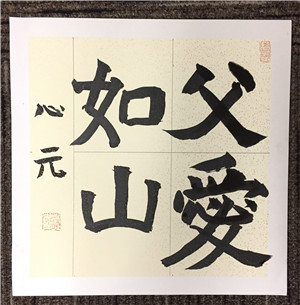 父愛
如山
心元